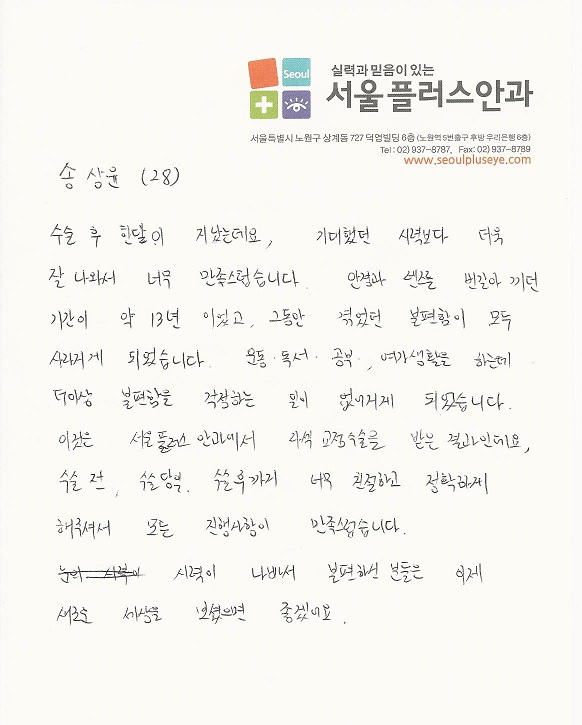 Seoul
실력과 믿음이 있는
서울플러스안과
서울특별시 노원구 상계동 727 덕영빌딩 6층 (노원역 5번출구 후방 우리은행 6층)
Tel : 02) 937-8787, Fax: 02) 937-8789
www.seoulpluseye.com
송상윤 (28)
수술 후 한달이 지났는데요, 기대했던 시력보다 더욱
잘 나와서 너무 만족스럽습니다. 안경과 렌즈를 번갈아 끼던
기간이 약 13년 이었고, 그동안 겪었던 불편함이 모두
사라지게 되었습니다. 운동·독서·공부, 여가생활을 하는데
더이상 불편함을 걱정하는 일이 없어지게 되었습니다.
이것은 서울플러스안과에서 라섹 교정수술을 받은 결과인데요,
수술 전, 수술당일, 수술후까지 너무 친절하고 정확하게
해주셔서 모든 진행사항이 만족스럽습니다.
눈이 시력이 시력이 나빠서 불편하신 분들은 이제
새로운 세상을 보셨으면 좋겠어요.